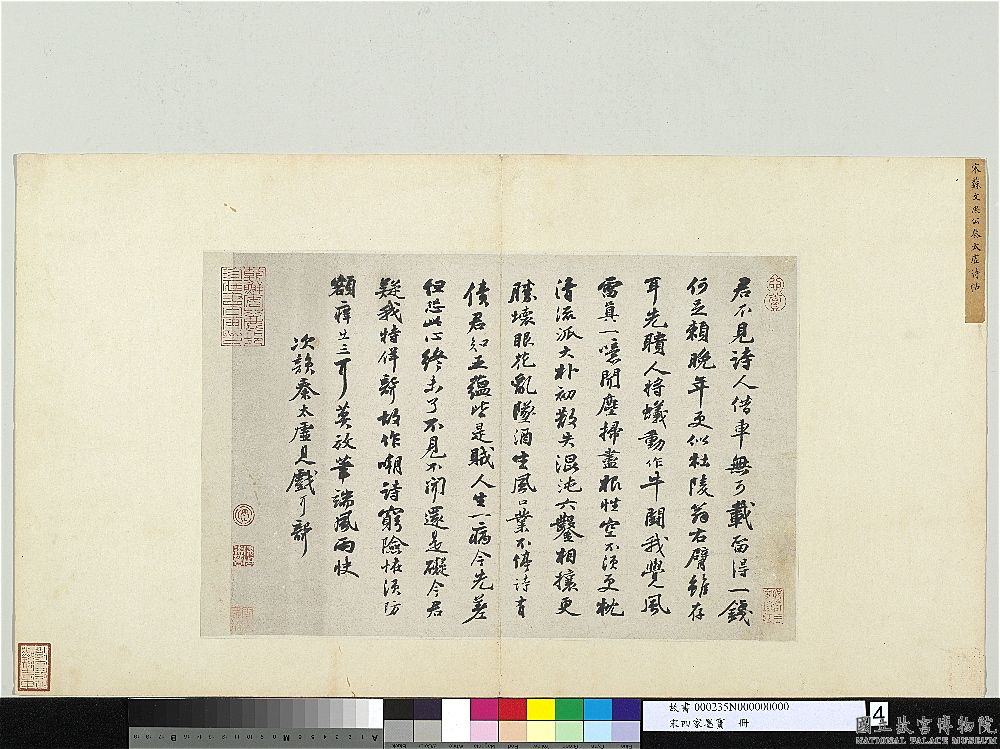 宋蘇文忠公秦太虛詩帖
君不見詩人借車無可載留得一錢
何足賴晚年更似杜陵翁右臂雖存
耳先聵人將蟻動作牛鬬我覺風
雷真一噫聞塵掃盡根性空不須更枕
清流派大朴初散失混沌六鑿相攘更
勝壞眼花亂墜酒生風口業不停詩有
債君知五蘊皆是賊人生一病今先差
但恐此心終未了不見不聞還是礙今君
疑我特佯聾故作嘲詩窮險怪須防
額痒出三耳莫放筆端風雨快
次韻秦太虛見戲耳聾
故書 000235N000000000
宋四家墨寶 冊
4
國立故宮博物院
NATIONAL PALACE MUSEUM